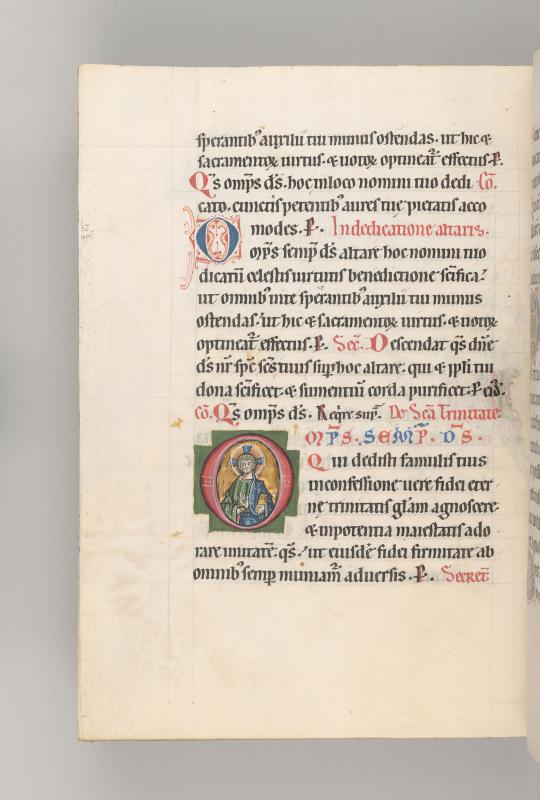 sperantib⁹ auxiliu tui munus ostendas. ut hic &
sacramentoꝝ uirtus. & uotoꝝ optineat̄ effectus. P.
Qs omps ds̄. hoc in loco nomini tuo dedi Cō.
cato. cunctis petentib⁹ aures tue pietatis acco
modes. P. In dedicatione altaris.
Omps semp̄ ds̄ altare hoc nomini tuo
dicatū celestis uirtutis benedictione sc̄ifica.
ut omnib⁹ in te sperantib⁹ auxilii tui munus
ostendas. ut hic & sacramentoꝝ uirtus. & uotoꝝ
optineat̄ effectus. P. Sec̄. Descendat qs dn̄e
ds̄ nr̄ sp̄c sc̄s tuus sup hoc altare. qui & ppli tui
dona sc̄ificet. & sumentiū corda purificet. P.
cō. Qs omps ds̄. Reqre sup̄. De Scā Trinitate
OMPS. SEMP̄. DS̄.
Qui dedisti famulis tuis
in confessione uere fidei eter
ne trinitatis glam̄ agnoscere
& in potentia maiestatis ado
rare unitatē. qs. ut eiusdē fidei firmitate ab
omnib⁹ semp muniam̄ aduersis. P. Secret̄